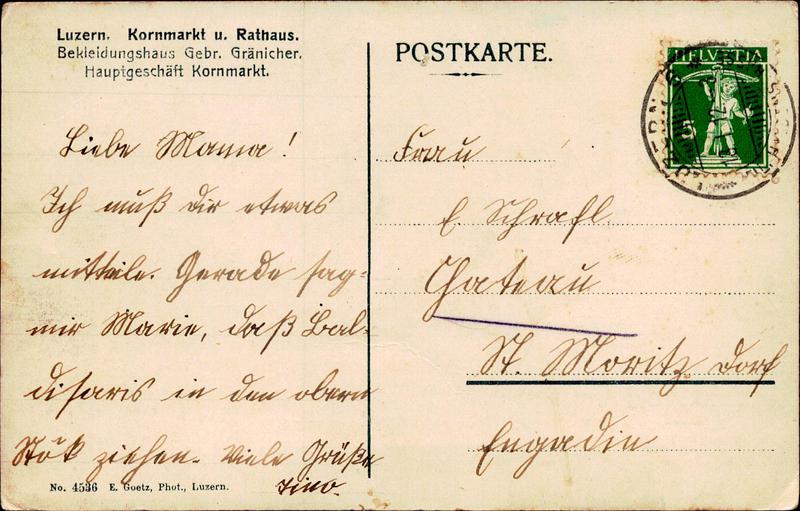 Luzern. Kornmarkt u. Rathaus.
Bekleidungshaus Gebr. Gränicher.
Hauptgeschäft Kornmarkt.
POSTKARTE.
HELVETIA
5
LUZERN
Liebe Mama!
Ich muß dir etwas
mitteile. Gerade sag-
mir Marie, daß Bal-
disaris in den obern
Stök ziehen. Viele Grüße
Frau
E. Schrafl
Chateau
St. Moritz Dorf
Engadin
No. 4536 E. Goetz, Phot., Luzern.